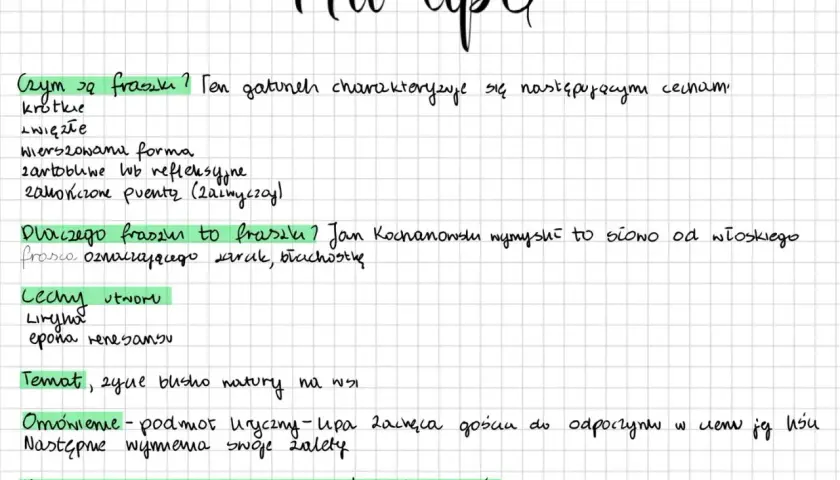 Na lipę
Czym są fraszki? Ten gatunek charakteryzuje się następującymi cechami
krótkie
zwięzłe
wierszowana forma
żartobliwe lub refleksyjne
zakończone puentą (zazwyczaj)
Dlaczego fraszki to fraszki? Jan Kochanowski wymyślił to słowo od włoskiego
frasca oznaczającego żarcik, błachostkę
Cechy utworu
Liryka
epoka renesansu
Temat, życie blisko natury na wsi
Omówienie - podmiot liryczny - lipa zachęca gościa do odpoczynku w cieniu jej liści
Następnie wymienia swoje zalety